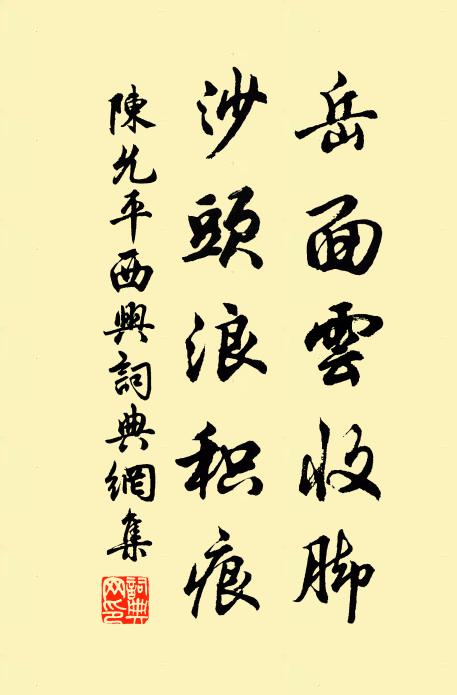 岳面雲收脚
沙頭浪积痕
陳允平西興詞典網集
詞典網印